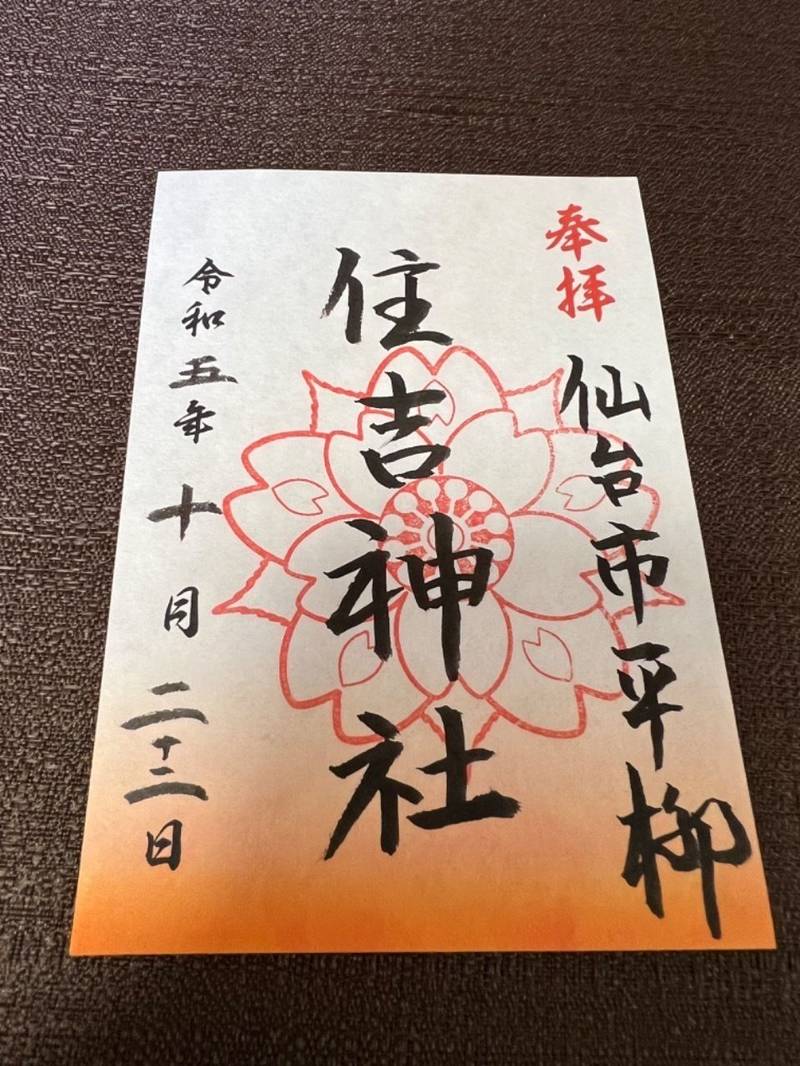 奉拝
仙台市平柳
住吉神社
令和五年十月二十二日